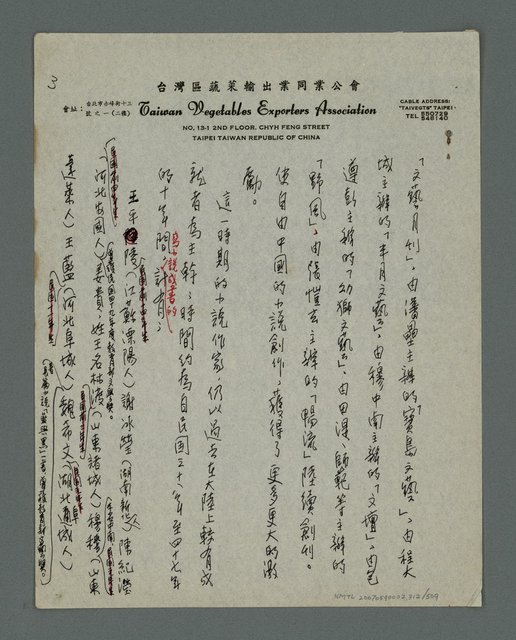 3
台灣區蔬菜輸出業同業公會
會址：台北市赤峰街十三號之一（二樓）
Taiwan Vegetables Exporters Association
NO. 13-1 2ND FLOOR. CHYH FENG STREET
TAIPEI TAIWAN REPUBLIC OF CHINA
CABLE ADDRESS:
"TAIVEGTS" TAIPEI
TEL
「文藝月刊」，由潘壘主辦的「寶島文藝」，由程大
城主辦的「半月文藝」，由穆中南主辦的「文壇」，由包
遵彭主辦的「幼獅文藝」，由田湜、師範等主辦的
「野風」，由陸愷玄主辦的「暢流」陸續創刊。
使自由中國的小說創作，獲得了更多更大的激
勵。
這一時期的小說作家，仍以過去在大陸上較有成
就者為主幹；時間約為自民國三十八年至四十七年
的十年間，計有：
王平陵（江蘇溧陽人）謝冰瑩（湖南新化人）陳紀瀅
（河北安國人）姜貴，姓王名林渡（山東諸城人）穆穆（山東
蓬萊人）王藍（河北阜城人）魏希文（湖北通城人）
NMTL 20070590002 312/509